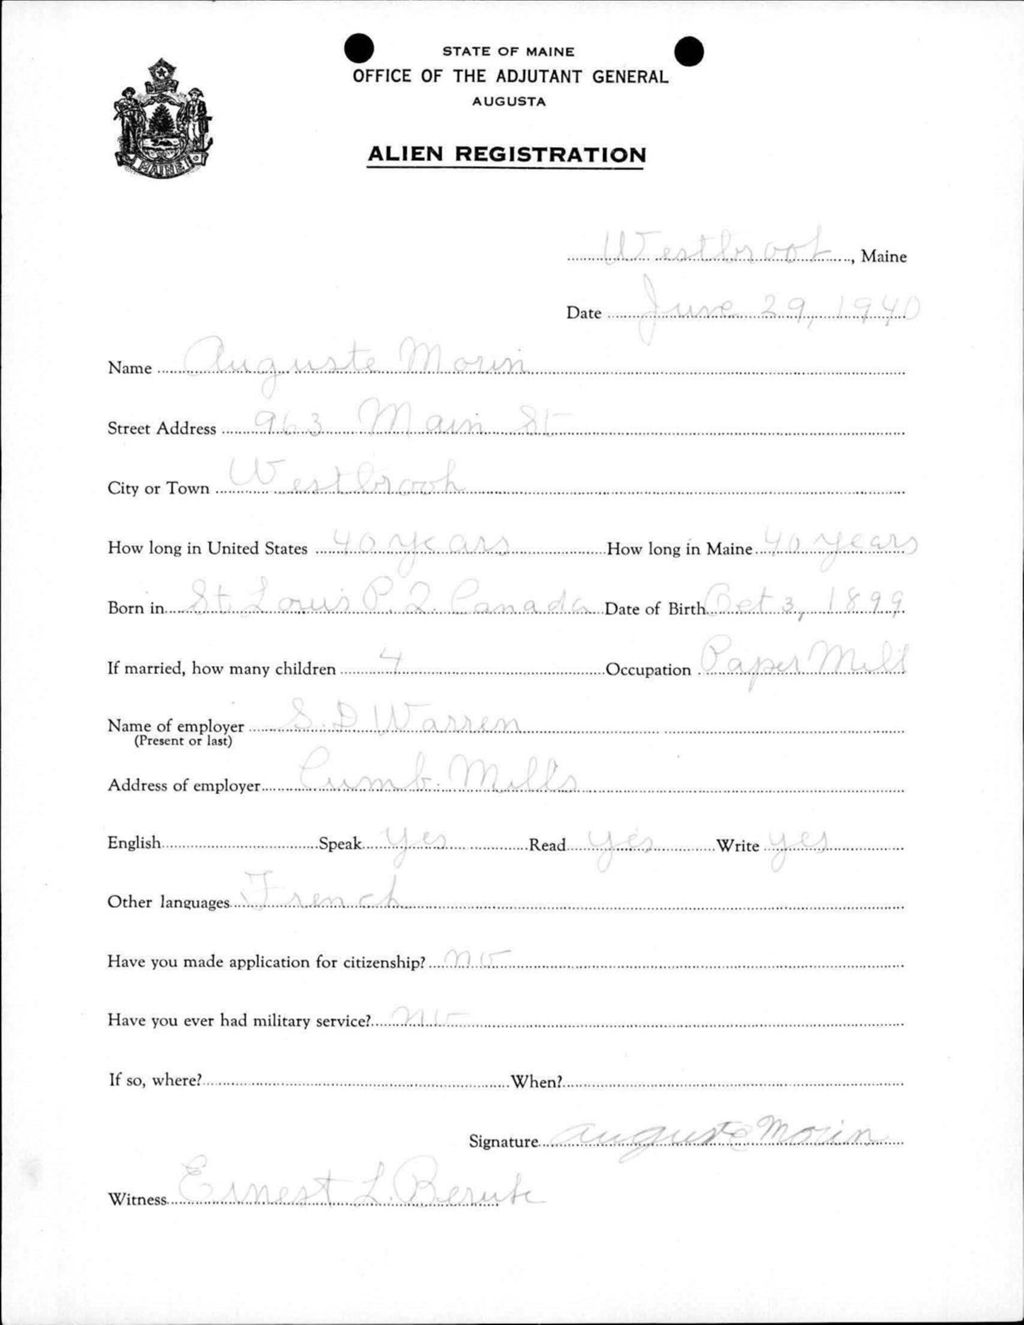 STATE OF MAINE
OFFICE OF THE ADJUTANT GENERAL
AUGUSTA
ALIEN REGISTRATION
Westbrook, Maine
Date June 29, 1940
Name Auguste Morin
Street Address 963 Main St
City or Town Westbrook
How long in United States 40 years How long in Maine 40 years
Born in St. Louis P.Q. Canada Date of Birth Oct 3, 1899
If married, how many children 4 Occupation Paper Mill
Name of employer S. D Warren
(Present or last)
Address of employer Cumb. Mills
English Speak yes Read yes Write yes
Other languages French
Have you made application for citizenship? no
Have you ever had military service? no
If so, where? When?
Signature Auguste Morin
Witness Ernest L. Berube